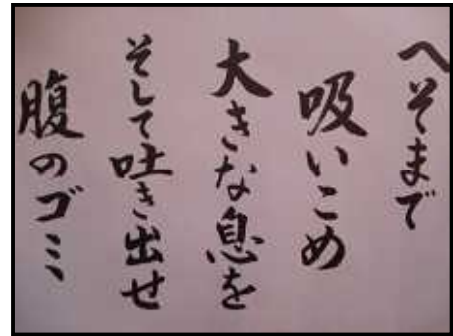 へそまで
吸いこめ
大きな息を
そして吐き出せ
腹のゴミ